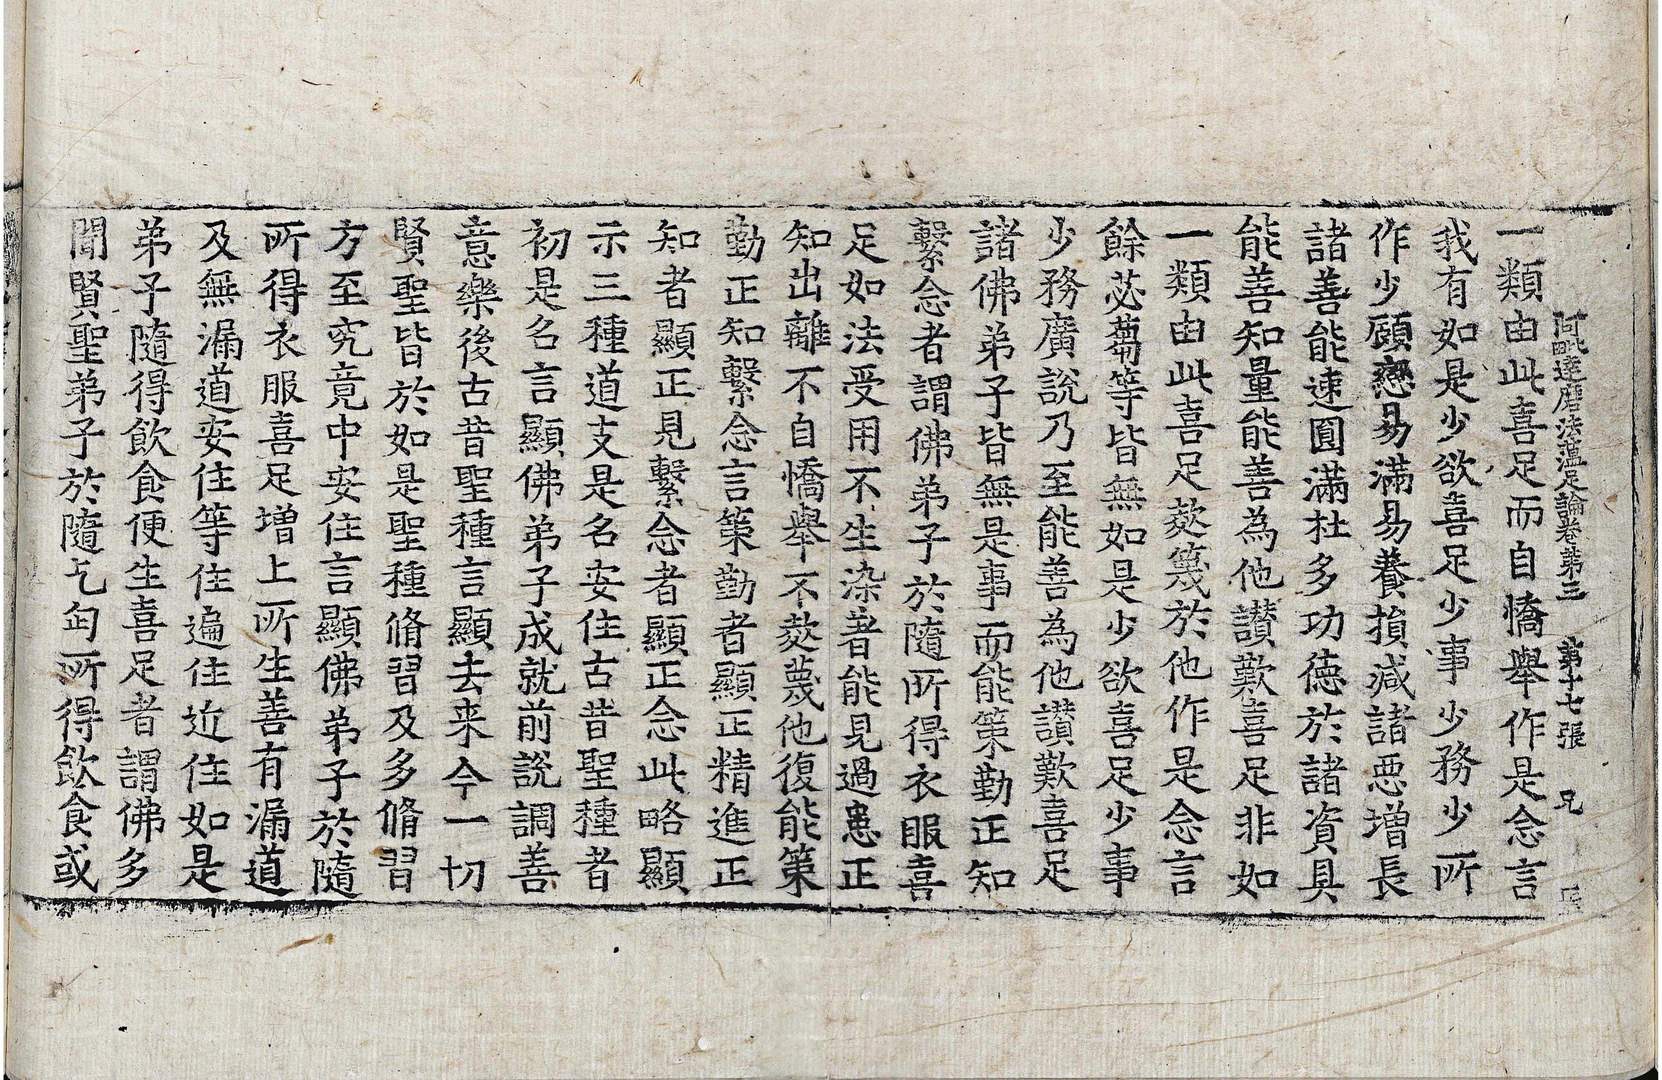 阿毗達磨法蘊足論卷第三 第十七張 兄
一類由此喜足而自憍舉作是念言
我有如是少欲喜足少事少務少所
作少顧戀易滿易養損減諸惡增長
諸善能速圓滿杜多功德於諸資具
能善知量能善為他讃歎喜足非如
一類由此喜足蔑於他作是念言
餘苾蒭等皆無如是少欲喜足少事
少務廣說乃至能善為他讃歎喜足
諸佛弟子皆無是事而能策勤正知
繫念者謂佛弟子於隨所得衣服喜
足如法受用不生染著能見過患正
知出離不自憍舉不蔑他復能策
勤正知繫念言策勤者顯正精進正
知者顯正見繫念者顯正念此略顯
示三種道支是名安住古昔聖種者
初是名言顯佛弟子成就前說調善
意樂後古昔聖種言顯去来今一切
賢聖皆於如是聖種脩習及多脩習
方至究竟中安住言顯佛弟子於隨
所得衣服喜足增上所生善有漏道
及無漏道安住等住遍住近住如是
弟子隨得飲食便生喜足者謂佛多
聞賢聖弟子於隨乞匃所得飲食或